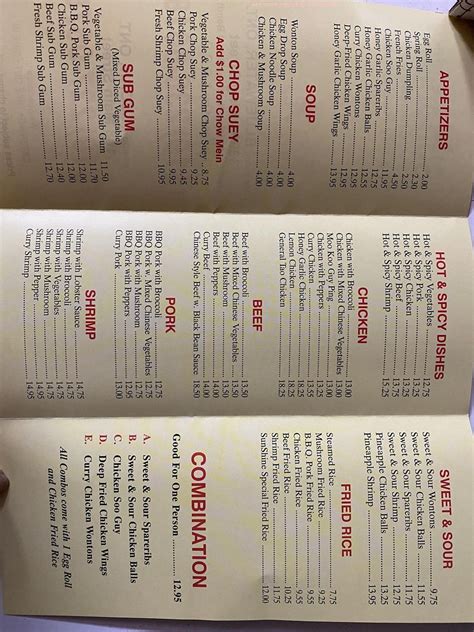 APPETIZERS
Egg Roll 2.00
Spring Roll
Chicken Dumpling
French Fries
Chicken Soo Guy 11.95
Honey Garlic Spareribs 12.55
Honey Garlic Chicken Balls 12.55
Deep-Fried Chicken Wings
Curry Chicken Wontons
Honey Garlic Chicken Wings 13.95
SOUP
Wonton Soup 4.00
Egg Drop Soup 4.00
Chicken Noodle Soup 4.00
Chicken & Mushroom Soup 4.00
CHOP SUEY
Add $1.00 for Chow Mein
Vegetable & Mushroom Chop Suey 8.75
Chicken Chop Suey 9.25
Pork Chop Suey 9.45
Beef Chop Suey 9.95
Fresh Shrimp Chop Suey 10.95
SUB GUM
(Mixed Diced Vegetable)
Vegetable & Mushroom Sub Gum 11.50
Pork Sub Gum 11.70
B.B.Q. Pork Sub Gum 12.00
Chicken Sub Gum 12.40
Beef Sub Gum
Fresh Shrimp Sub Gum 12.70
HOT & SPICY DISHES
Hot & Spicy Vegetables 12.75
Hot & Spicy Pork 13.25
Hot & Spicy Beef 13.75
Hot & Spicy Chicken 13.75
Hot & Spicy Shrimp 15.25
CHICKEN
Chicken with Broccoli
Chicken with Mixed Chinese Vegetables
Moo Koo Guy Ping
Chicken with Peppers
Honey Garlic Chicken 13.25
Lemon Chicken 13.25
General Tao Chicken 18.25
BEEF
Beef with Broccoli 13.50
Beef with Mixed Chinese Vegetables 13.50
Beef with Mushroom 13.50
Beef with Peppers 13.50
Chinese Style Beef w. Black Bean Sauce 18.50
Curry Beef 14.00
PORK
BBQ Pork with Broccoli 12.75
BBQ Pork w. Mixed Chinese Vegetables 12.75
BBQ Pork with Mushroom 12.75
BBQ Pork with Peppers 12.75
Curry Pork 13.00
SHRIMP
Shrimp with Lobster Sauce 14.75
Shrimp with Vegetables 14.75
Shrimp with Mushroom 14.75
Shrimp with Pepper 14.95
Curry Shrimp 14.95
SWEET & SOUR
Sweet & Sour Wontons 9.75
Sweet & Sour Chicken Balls
Sweet & Sour Spareribs
Sweet & Sour Shrimp 12.50
Pineapple Chicken Balls 12.25
Pineapple Shrimp 13.00
FRIED RICE
Steamed Rice 7.75
Mushroom Fried Rice
B.B.Q. Pork Fried Rice
Chicken Fried Rice 9.55
Beef Fried Rice 10.25
Shrimp Fried Rice 11.25
SunShine Special Fried Rice 12.00
COMBINATION
Good For One Person 12.95
A. Sweet & Sour Spareribs
B. Sweet & Sour Chicken Balls
C. Chicken Soo Guy
D. Deep Fried Chicken Wings
E. Curry Chicken Wontons
All Combos come with 1 Egg Roll
and Chicken Fried Rice